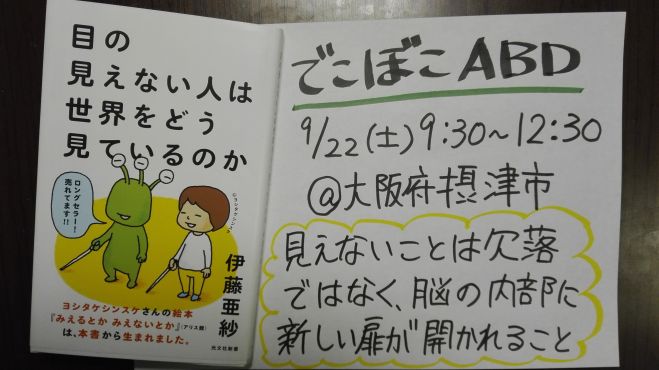 目の
見えない人は
世界をどう
見ているのか
ロングセラー!
売れてます!!
©ヨシタケシンスケ
伊藤亜紗
ヨシタケシンスケさんの絵本
『みえるとか みえないとか』(アリス館)
は、本書から生まれました。
光文社新書
でこぼこABD
9/22(土)9:30~12:30
@大阪府摂津市
見えないことは欠落
ではなく、脳の内部に
新しい扉が開かれること